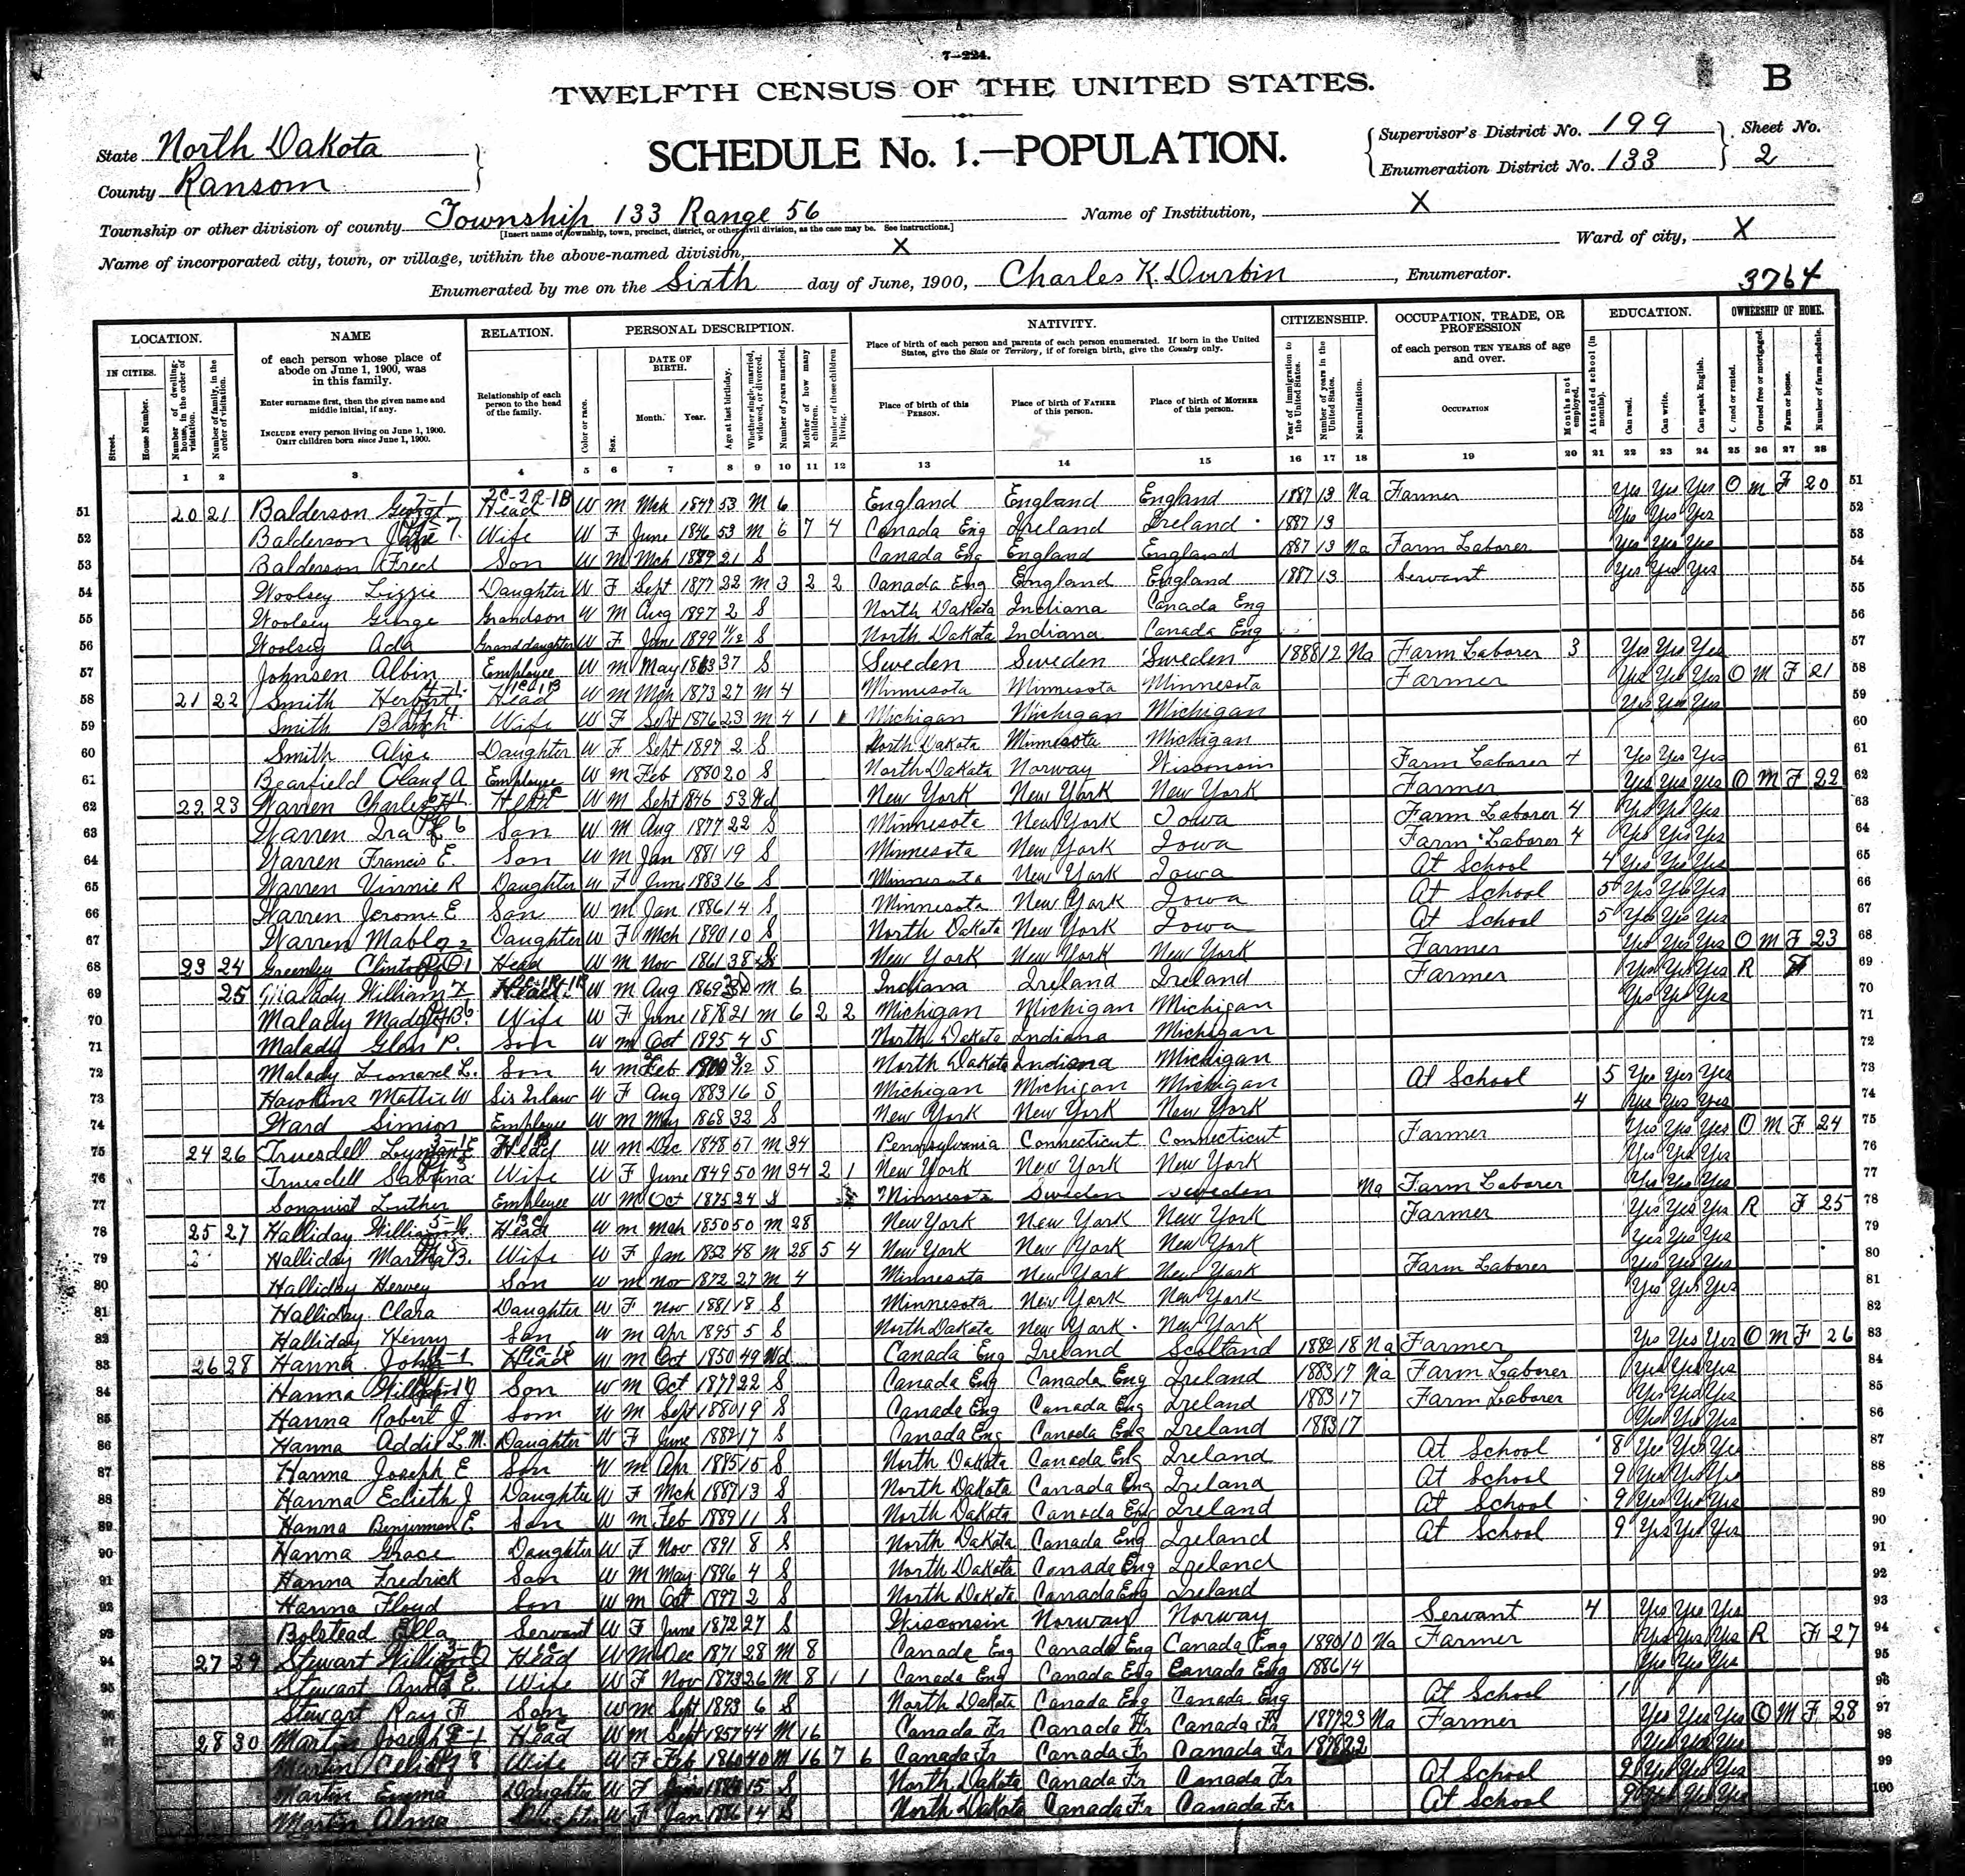 7-224.
TWELFTH CENSUS OF THE UNITED STATES.
B
SCHEDULE No. 1.—POPULATION.
State North Dakota
County Ransom
Supervisor's District No. 199
Enumeration District No. 133
Sheet No. 2
Township or other division of county Township 133 Range 56 Name of Institution, X
[Insert name of township, town, precinct, district, or other civil division, as the case may be. See instructions.]
Name of incorporated city, town, or village, within the above-named division, X Ward of city, X
Enumerated by me on the Sixth day of June, 1900, Charles K. Durbin, Enumerator.
3764
LOCATION. NAME RELATION. PERSONAL DESCRIPTION. NATIVITY. CITIZENSHIP. OCCUPATION, TRADE, OR PROFESSION EDUCATION. OWNERSHIP OF HOME.
IN CITIES. Street. House Number. Number of dwelling-house, in the order of visitation. Number of family, in the order of visitation.
of each person whose place of abode on June 1, 1900, was in this family.
Enter surname first, then the given name and middle initial, if any.
INCLUDE every person living on June 1, 1900. OMIT children born since June 1, 1900.
Relationship of each person to the head of the family.
Color or race. Sex. DATE OF BIRTH. Month. Year. Age at last birthday. Whether single, married, widowed, or divorced. Number of years married. Mother of how many children. Number of these children living.
Place of birth of each person and parents of each person enumerated. If born in the United States, give the State or Territory; if of foreign birth, give the Country only.
Place of birth of this PERSON. Place of birth of FATHER of this person. Place of birth of MOTHER of this person.
Year of immigration to the United States. Number of years in the United States. Naturalization.
of each person TEN YEARS of age and over.
OCCUPATION Months not employed.
Attended school (in months). Can read. Can write. Can speak English.
Owned or rented. Owned free or mortgaged. Farm or house. Number of farm schedule.
1 2 3 4 5 6 7 8 9 10 11 12 13 14 15 16 17 18 19 20 21 22 23 24 25 26 27 28
51 20 21 Balderson George Head W M Mch 1847 53 M 6 England England England 1887 13 Na Farmer Yes Yes Yes O M F 20 51
52 Balderson Wife W F June 1846 53 M 6 7 4 Canada Eng Ireland Ireland 1887 13 Yes Yes Yes 52
53 Balderson Fred Son W M Mch 1879 21 S Canada Eng England England 1887 13 Na Farm Laborer Yes Yes Yes 53
54 Woolsey Lizzie Daughter W F Sept 1877 22 M 3 2 2 Canada Eng England England 1887 13 Servant Yes Yes Yes 54
55 Woolsey George Grandson W M Aug 1897 2 S North Dakota Indiana Canada Eng 55
56 Woolsey Ada Granddaughter W F June 1899 S North Dakota Indiana Canada Eng 56
57 Johnsen Albin Employee W M May 1863 37 S Sweden Sweden Sweden 1888 12 Na Farm Laborer 3 Yes Yes Yes 57
58 21 22 Smith Herbert Head W M Mch 1873 27 M 4 Minnesota Minnesota Minnesota Farmer Yes Yes Yes O M F 21 58
59 Smith Blanch Wife W F Sept 1876 23 M 4 1 1 Michigan Michigan Michigan Yes Yes Yes 59
60 Smith Alice Daughter W F Sept 1897 2 S North Dakota Minnesota Michigan 60
61 Bearfield Oland A. Employee W M Feb 1880 20 S North Dakota Norway Wisconsin Farm Laborer 4 Yes Yes Yes 61
62 22 23 Warren Charles H. Head W M Sept 1846 53 Wd New York New York New York Farmer Yes Yes Yes O M F 22 62
63 Warren Ira Son W M Aug 1877 22 S Minnesota New York Iowa Farm Laborer 4 Yes Yes Yes 63
64 Warren Francis E. Son W M Jan 1881 19 S Minnesota New York Iowa Farm Laborer 4 Yes Yes Yes 64
65 Warren Vinnie R Daughter W F June 1883 16 S Minnesota New York Iowa At School 4 Yes Yes Yes 65
66 Warren Jerome E Son W M Jan 1886 14 S Minnesota New York Iowa At School 5 Yes Yes Yes 66
67 Warren Mable Daughter W F Mch 1890 10 S North Dakota New York Iowa At School 5 Yes Yes Yes 67
68 23 24 Greenley Clinton Head W M Nov 1861 38 S New York New York New York Farmer Yes Yes Yes O M F 23 68
69 25 Malady William Head W M Aug 1869 30 M 6 Indiana Ireland Ireland Farmer Yes Yes Yes R F 69
70 Malady Madge B. Wife W F June 1878 21 M 6 2 2 Michigan Michigan Michigan Yes Yes Yes 70
71 Malady Glen P. Son W M Oct 1895 4 S North Dakota Indiana Michigan 71
72 Malady Leonard L. Son W M Feb 1900 3/12 S North Dakota Indiana Michigan 72
73 Hawkins Mattie W Sis Inlaw W F Aug 1883 16 S Michigan Michigan Michigan At School 5 Yes Yes Yes 73
74 Ward Simion Employee W M May 1868 32 S New York New York New York 4 Yes Yes Yes 74
75 24 26 Truesdell Lyman Head W M Dec 1848 51 M 34 Pennsylvania Connecticut Connecticut Farmer Yes Yes Yes O M F 24 75
76 Truesdell Sabrina Wife W F June 1849 50 M 34 2 1 New York New York New York Yes Yes Yes 76
77 Sonquist Luther Employee W M Oct 1875 24 S Minnesota Sweden Sweden Na Farm Laborer Yes Yes Yes 77
78 25 27 Halliday William Head W M Mch 1850 50 M 28 New York New York New York Farmer Yes Yes Yes R F 25 78
79 Halliday Martha B. Wife W F Jan 1852 48 M 28 5 4 New York New York New York Yes Yes Yes 79
80 Halliday Hervey Son W M Nov 1872 27 M 4 Minnesota New York New York Farm Laborer Yes Yes Yes 80
81 Halliday Clara Daughter W F Nov 1881 18 S Minnesota New York New York Yes Yes Yes 81
82 Halliday Henry Son W M Apr 1895 5 S North Dakota New York New York 82
83 26 28 Hanna John Head W M Oct 1850 49 Wd Canada Eng Ireland Scotland 1882 18 Na Farmer Yes Yes Yes O M F 26 83
84 Hanna William J Son W M Oct 1877 22 S Canada Eng Canada Eng Ireland 1883 17 Na Farm Laborer Yes Yes Yes 84
85 Hanna Robert J. Son W M Sept 1880 19 S Canada Eng Canada Eng Ireland 1883 17 Farm Laborer Yes Yes Yes 85
86 Hanna Addie L. M. Daughter W F June 1882 17 S Canada Eng Canada Eng Ireland 1883 17 Yes Yes Yes 86
87 Hanna Joseph E Son W M Apr 1885 15 S North Dakota Canada Eng Ireland At School 8 Yes Yes Yes 87
88 Hanna Edieth J Daughter W F Mch 1887 13 S North Dakota Canada Eng Ireland At School 9 Yes Yes Yes 88
89 Hanna Benjerman E. Son W M Feb 1889 11 S North Dakota Canada Eng Ireland At School 9 Yes Yes Yes 89
90 Hanna Grace Daughter W F Nov 1891 8 S North Dakota Canada Eng Ireland At School 9 Yes Yes Yes 90
91 Hanna Fredrick Son W M May 1896 4 S North Dakota Canada Eng Ireland 91
92 Hanna Floyd Son W M Oct 1897 2 S North Dakota Canada Eng Ireland 92
93 Bolstead Ella Servant W F June 1872 27 S Wisconsin Norway Norway Servant 4 Yes Yes Yes 93
94 27 29 Stewart William Head W M Dec 1871 28 M 8 Canada Eng Canada Eng Canada Eng 1890 10 Na Farmer Yes Yes Yes R F 27 94
95 Stewart Anna E. Wife W F Nov 1873 26 M 8 1 1 Canada Eng Canada Eng Canada Eng 1886 14 Yes Yes Yes 95
96 Stewart Ray F Son W M Sept 1893 6 S North Dakota Canada Eng Canada Eng At School 1 96
97 28 30 Martin Joseph Head W M Sept 1857 44 M 16 Canada Fr Canada Fr Canada Fr 1877 23 Na Farmer Yes Yes Yes O M F 28 97
Martin Celia Wife W F Feb 1860 40 M 16 7 6 Canada Fr Canada Fr Canada Fr 1878 22 Yes Yes Yes 98
Martin Emma Daughter W F 15 S North Dakota Canada Fr Canada Fr At School 9 Yes Yes Yes 99
Martin Alma Daughter W F Jan 1886 14 S North Dakota Canada Fr Canada Fr At School 9 Yes Yes Yes 100